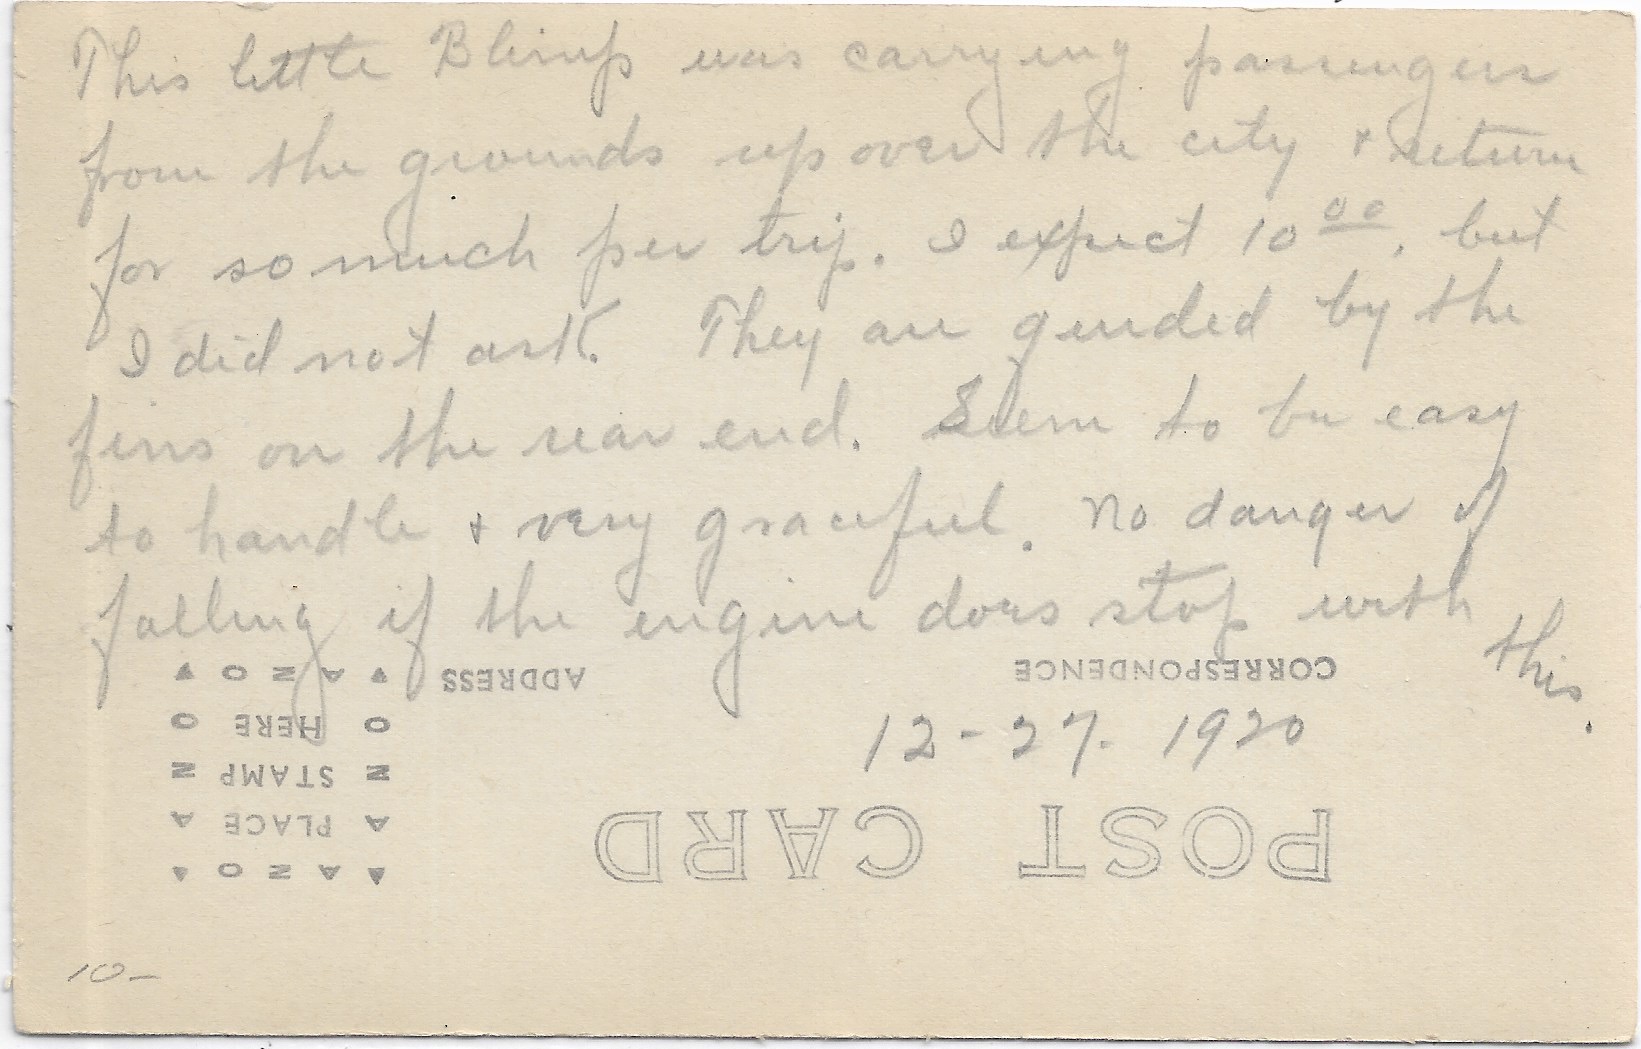 This little Blimp was carrying passengers
from the grounds up over the city + return
for so much per trip. I expect 10 00, but
I did not ask. They are guided by the
fins on the rear end. Seem to be easy
to handle + very graceful. No danger of
falling if the engine does stop with
this.
CORRESPONDENCE
ADDRESS
12-27. 1920
POST CARD
AZO
PLACE
STAMP
HERE
AZO
10-